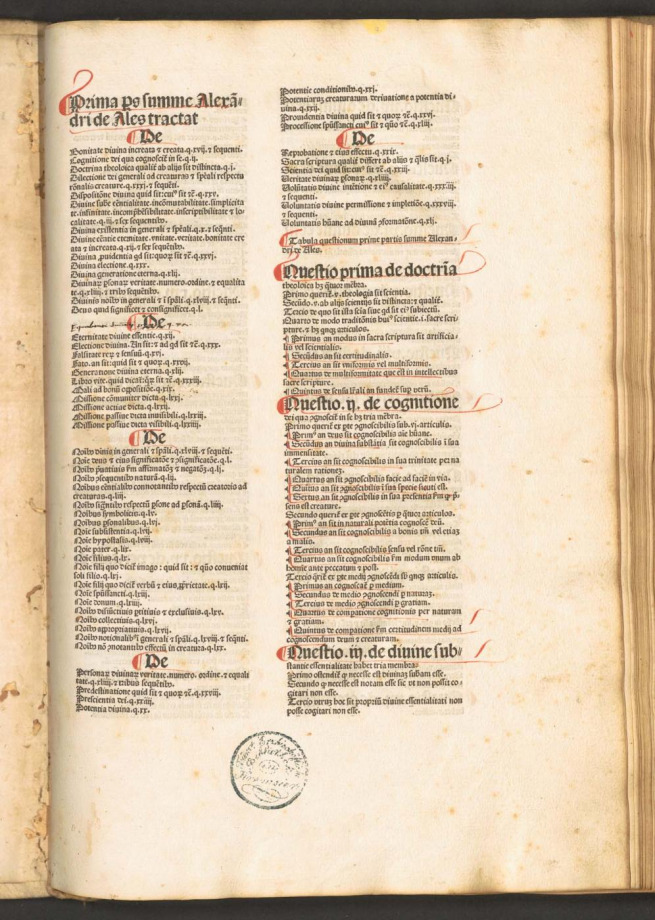 Prima ps summe Alexā-
dri de Ales tractat
De
Bonitate diuina increata ⁊ creata.q.xvij.⁊ sequenti.
Cognitione dei qua cognoscit in se.q.ij.
Doctrina theologica qualit ab alijs sit distincta.q.j.
Dilectione dei generali ad creaturas ⁊ spēali respectu
rōnalis creature.q.xxxj.⁊ sequēti.
Dispositōne diuina quid sit: ⁊c.q.xxv.
te.infinitate.incomphēsibilitate.inscriptibilitate ⁊ lo-
calitate.q.iij.⁊ sex sequentibꝰ.
Diuine existentia in generali ⁊ spēali.q.x.⁊ seqnti.
Diuine eēntie eternitate.vnitate.veritate.bonitate cre
ata ⁊ increata.q.xij.⁊ sex sequētibꝰ.
Diuina ꝓuidentia qd sit: ⁊c.q.xxvj.
Diuina electione.q.xxx.
Diuina generatione eterna.q.xlij.
Diuinaꝝ psonaꝝ veritate.numero.ordine.⁊ equalita
te.q.xliij.⁊ tribꝰ sequētibꝰ.
Diuinis noībꝰ in generali ⁊ ī spāli.q.xlviij.⁊ seqnti.
Deus quid significet ⁊ consignificet.q.l.
De
Eternitate diuine essentie.q.xij.
Electione diuina. An sit: ⁊ ad qd sit ⁊c.q.xxx.
Falsitate reꝝ ⁊ sensuū.q.xvj.
Fato. an sit: quid sit ⁊ quoꝝ ⁊c.q.xxvij.
Generatione diuina eterna.q.xlij.
Libro vite. quid dicat: qꝝ sit ⁊c.q.xxxiij.
Mali ad bonū oppositiōe.q.xix.
Missione cōmuniter dicta.q.lxxj.
Missione actiue dicta.q.lxxij.
Missione passiue dicta inuisibili.q.lxxiij.
Missione passiue dicta visibili.q.lxxiiij.
De
Noībꝰ diuinis in generali ⁊ spāli.q.xlviij.⁊ sequēti.
Noīe deus ⁊ eius significatōe ⁊ ꝯsignificatōe.q.l.
Noībꝰ sequentibꝰ naturā.q.lij.
Noībus eēntialibꝰ connotantibꝰ respectū creatoris ad
creaturas.q.liij.
Noībꝰ signātibꝰ respectū psone ad psonā.q.liiij.
Noībus symbolicis.q.lv.
Noībus psonalibus.q.lvj.
Noīe subsistentia.q.lvij.
Noīe hypostasis.q.lviij.
Noīe pater.q.lix.
Noīe filius.q.lx.
Noīe filij quo dicit imago: quid sit: ⁊ qūo conueniat
soli filio.q.lxj.
Noīe filij quo dicit verbū ⁊ eius ꝓprietate.q.lxij.
Noīe spūssancti.q.lxiij.
Noīe donum.q.lxiiij.
Noībꝰ collectiuis.q.lxvj.
Noībꝰ appropriatiuis.q.lxvij.
Noībꝰ notionalibꝰ ī generali ⁊ spāli.q.lxviij.⁊ seqnti.
Noībꝰ nō ꝯnotantibꝰ effectū in creatura.q.lxx.
De
Personaꝝ diuinaꝝ veritate.numero.ordine.⁊ equali
tate.q.xliij.⁊ tribus sequētibꝰ.
Predestinatione quid sit ⁊ quoꝝ ⁊c.q.xxviij.
Prescientia dei.q.xxiiij.
Potentia diuina.q.xx.
Potentie conditionibꝰ.q.xxj.
Potentiaruꝫ creaturarum deriuatione a potentia di-
uina.q.xxij.
Prouidentia diuina quid sit ⁊ quoꝝ ⁊c.q.xxvj.
Processione spūssancti cuiꝰ sit ⁊ qūo ⁊c.q.xliij.
De
Reprobatione ⁊ eius effectu.q.xxix.
Sacra scriptura qualit differt ab alijs ⁊ qlis sit.q.j.
Scientia dei quid sit: cuiꝰ sit ⁊c.q.xxiij.
Veritate diuinaꝝ psonaꝝ.q.xliij.
Volūtatis diuine intētione ⁊ eiꝰ causalitate.q.xxxiiij.
⁊ sequenti.
Voluntatis diuine permissione ⁊ impletiōe.q.xxxviij
⁊ sequenti.
Voluntatis hūane ad diuinā ꝯformatōne.q.xlj.
Tabula questionum prime partis summe Alexan-
dri de Ales.
Questio prima de doctrīa
theologica hꝫ q̄tuor mēbra.
Primo querit. vtꝝ theologia sit scientia.
Secūdo. vtꝝ ab alijs scientijs sit distincta: ⁊ qualit.
Tercio de quo sit ista sciā siue qd sit eiꝰ subiectū.
Quarto de modo traditōnis huiꝰ scientie.i.sacre scri-
pture.⁊ hꝫ qnqꝫ articulos.
Primus an modus in sacra scriptura sit artificia-
lis vel scientialis.
Secūdus an sit certitudinalis.
Tercius an sit vniformis vel multiformis.
Quartus de multiformitate que est in intellectibus
sacre scripture.
Questio.ij. de cognitione
dei qua ꝯgnoscit in se hꝫ tria mēbra.
Primo querit ex pte cognoscibilis sub.vj.articulis.
Primꝰ an deus sit cognoscibilis aīe hūane.
Secūdus an diuina substātia sit cognoscibilis ī sua
immensitate.
Tercius an sit cognoscibilis in sua trinitate per na
turalem rationeꝫ.
Quartus an sit ꝯgnoscibilis facie ad faciē in via.
Quintus an sit ꝯgnoscibilis ī sua specie sicuti est.
Sextus an sit ꝯgnoscibilis in sua presentia
sens est creature.
Secundo querit ex pte ꝯgnoscētis ꝑ q̄tuor articulos.
Primꝰ an sit in naturali potētia cognoscē deū.
Secundus an sit cognoscibilis a bonis tm̄ vel etiaꝫ
a malis.
Tercius an sit cognoscibilis sensu vel rōne tm̄.
Quartus an sit cognoscibilis ꝑm modum vnum ab
homīe ante peccatum ⁊ post.
Tercio q̄rit ex pte medij ꝯgnoscēdi sb̄ qnqꝫ articulis.
Primus an cognoscat ꝑ medium.
Secundus de medio ꝯgnoscendi ꝑ naturaꝫ.
Tercius de medio ꝯgnoscendi ꝑ gratiam.
Quartus de compatione cognitionis per naturam
⁊ gratiam.
Quintus de compatione ꝑm certitudinem medij ad
cognoscendum deum ⁊ creaturam.
Questio.iij. de diuine sub-
stantie essentialitate habet tria membra.
Primo ostendit qꝫ necesse est diuinaꝫ subam esse.
Secundo qꝫ necesse est notam esse sic vt non possit co-
gitari non esse.
Tercio vtruꝫ hoc sit propriū diuine essentialitati non
posse cogitari non esse.